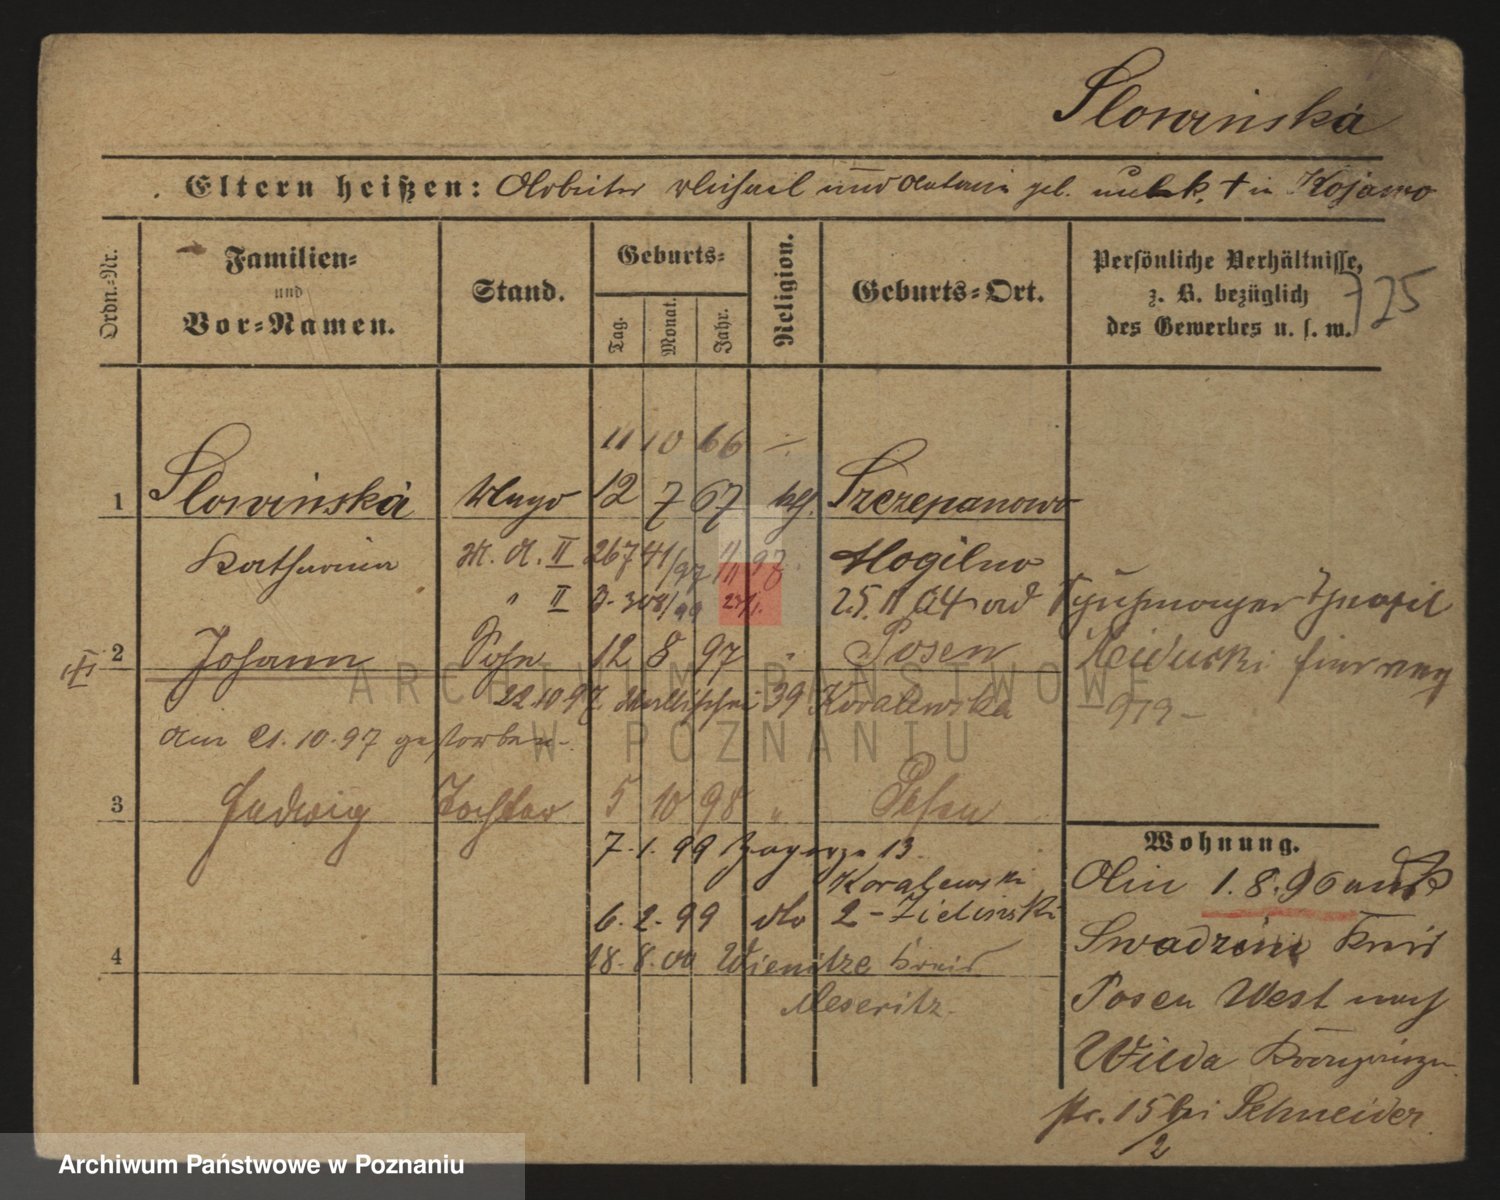 Slowinská
Eltern heißen: Arbeiter Michael und Antonie geb. † in Kojawo
Ordn.-Nr.
Familien-
und
Vor-Namen.
Stand.
Geburts-
Tag.
Monat.
Jahr.
Religion.
Geburts-Ort.
Persönliche Verhältnisse,
z. B. bezüglich
des Gewerbes u. s. w.
725
11 10 66
1 Slowinská Magd 12 7 67 kth. Szczepanowo
Katharina M. A. II 267 41/97 Mogilno
" II 308/99 25. 11 04 ad
2 Johann Sohn 12 8 97 " Posen
22 10 97 39 Koralewska
919
am 21. 10. 97 gestorben
3 Hedwig Tochter 5 10 98 " Posen
7. 1. 99 Zagorze 13
Koralewski
6. 2. 99 do 2 - Zielinski
4 18. 8. 00 Kreis
Meseritz.
Wohnung.
Am 1. 8. 96 aus
Swadzim Kreis
Posen West nach
Wilda Kronprinzen
str. 15 bei Schneider
2
ARCHIWUM PAŃSTWOWE
W POZNANIU
Archiwum Państwowe w Poznaniu